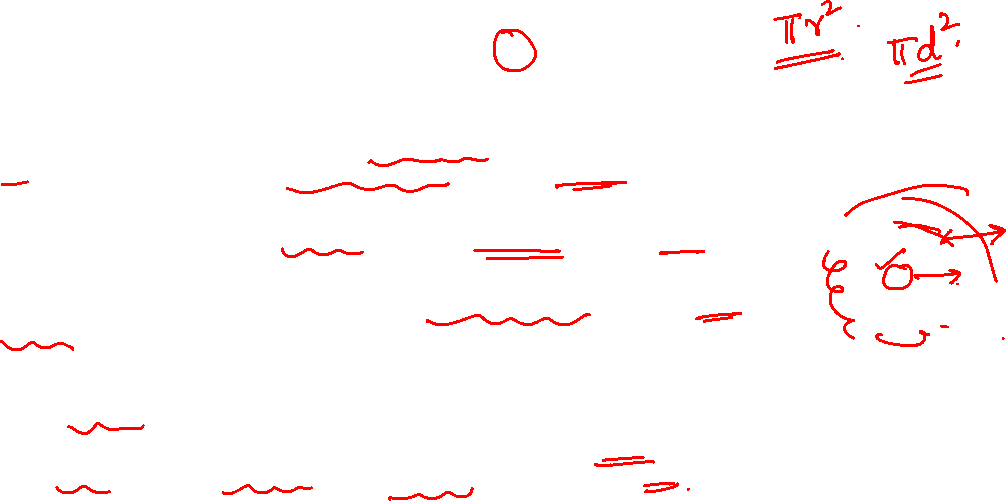 πr²
πd²